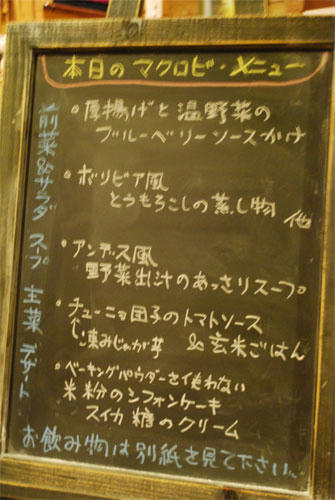 本日のマクロビ・メニュー
前菜&サラダ
・厚揚げと温野菜の
ブルーベリーソースがけ
・ボリビア風
とうもろこしの蒸し物 他
スープ
・アンデス風
野菜出汁のあっさりスープ
主菜
・チューニョ団子のトマトソース
凍みじゃが芋 &玄米ごはん
デザート
・ベーキングパウダーを使わない
米粉のシフォンケーキ
スイカ糖のクリーム
お飲み物は別紙を見て下さい。